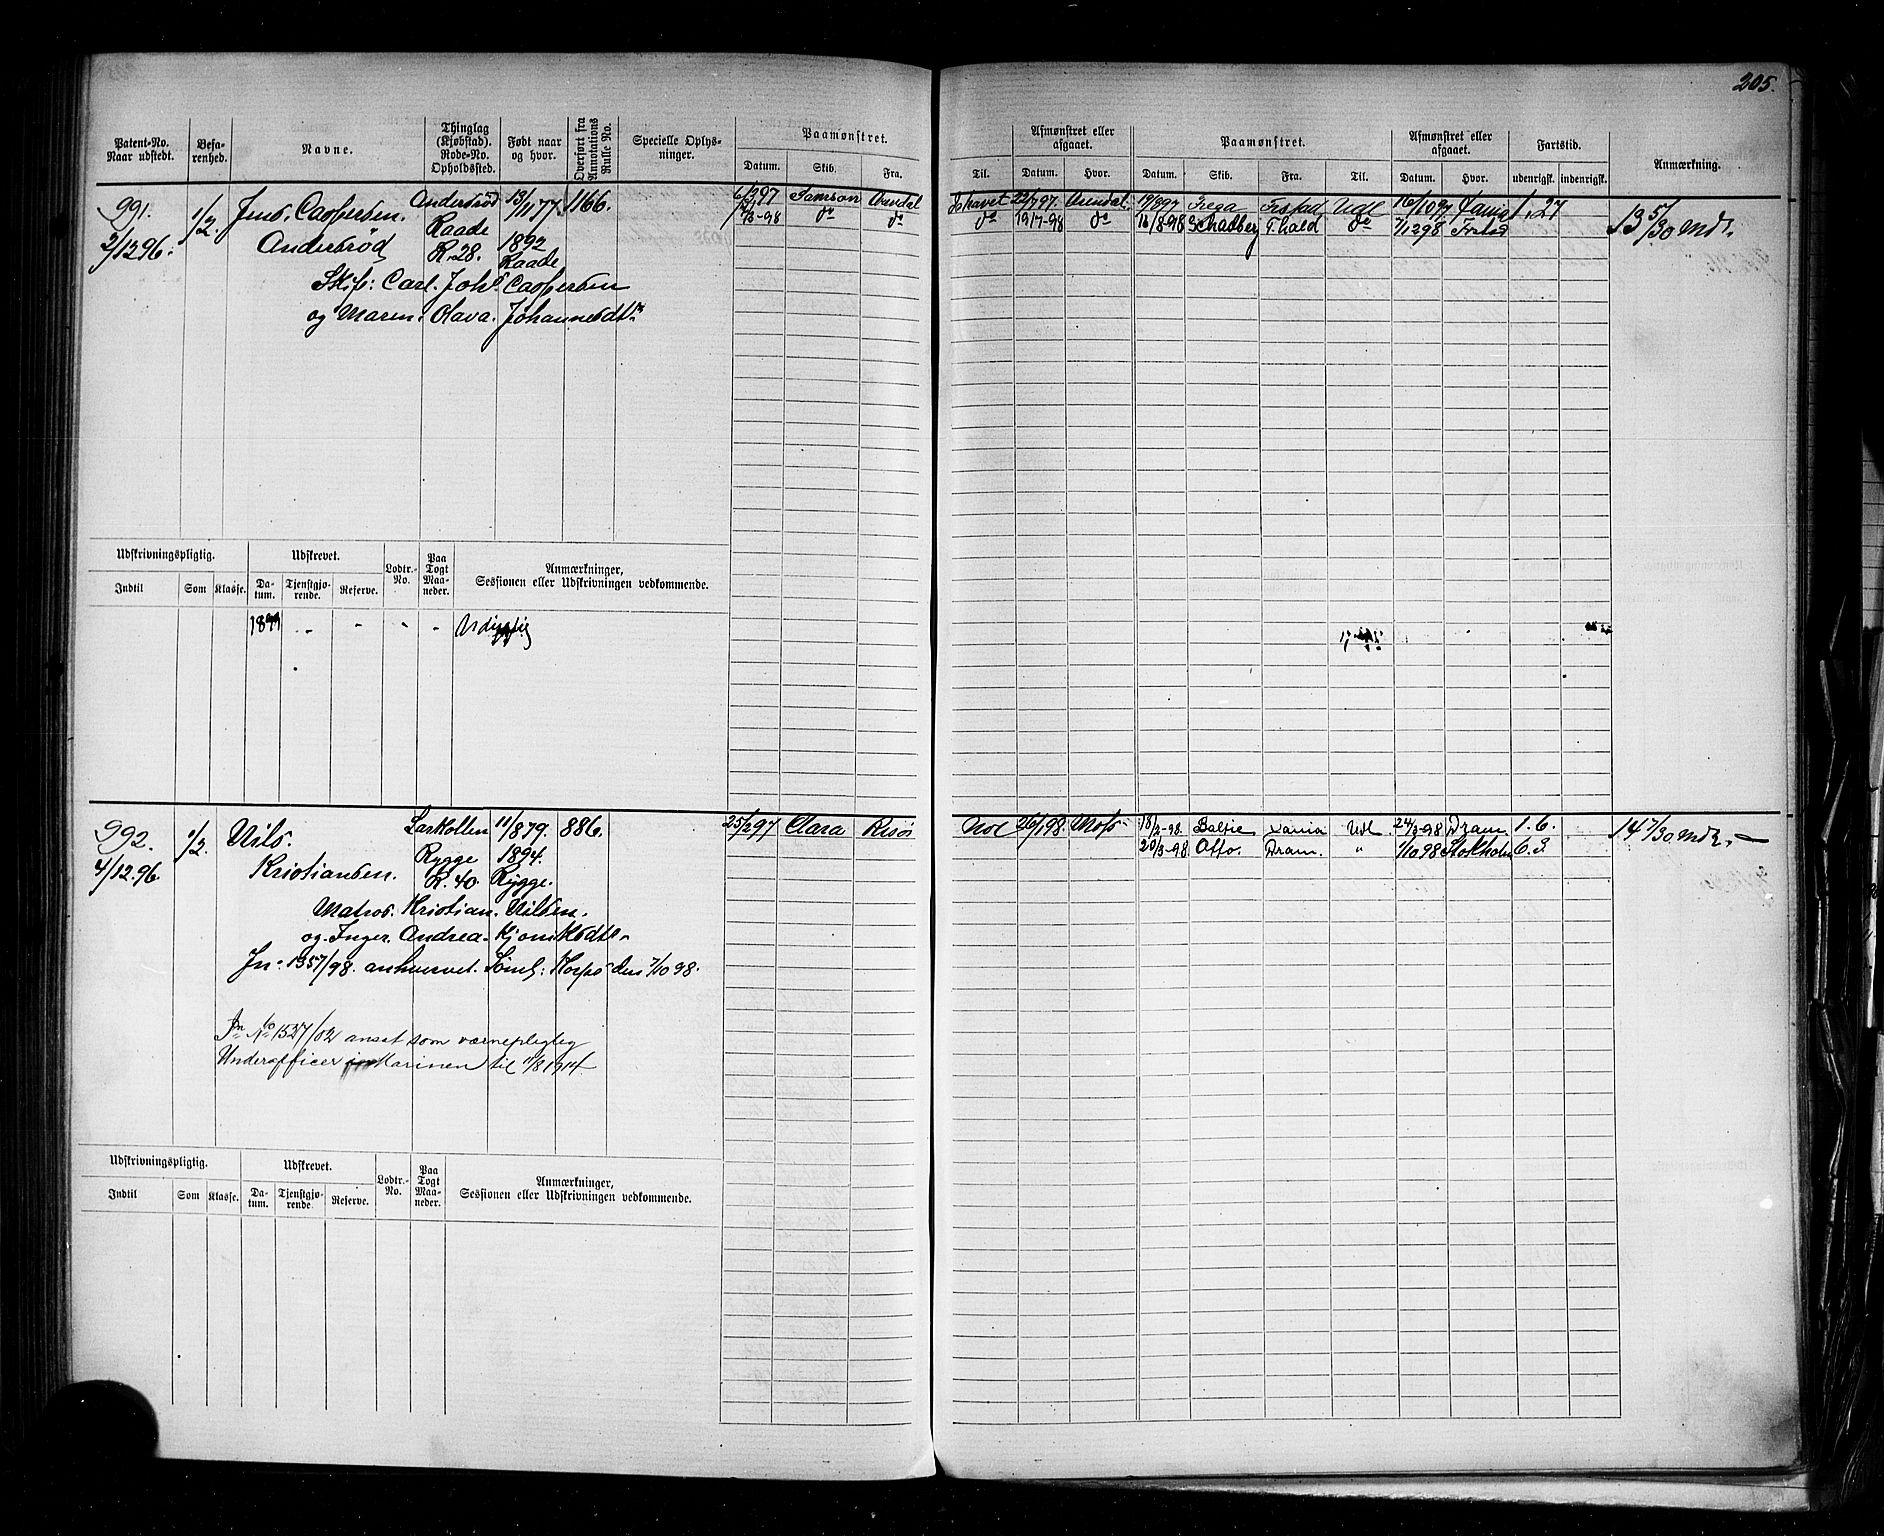 205.
Patent-No. Naar udstedt.
Befarenhed.
Navne.
Thinglag (Kjøbstad). Rode-No. Opholdssted.
Født naar og hvor.
Overført fra Annotations Rulle No.
Specielle Oplysninger.
Paamønstret.
Datum. Skib. Fra.
Til.
Afmønstret eller afgaaet.
Datum. Hvor.
Paamønstret.
Datum. Skib. Fra. Til.
Afmønstret eller afgaaet.
Datum. Hvor.
Fartstid.
udenrigsk. indenrigsk.
Anmærkning.
991. 1/2. Jens. Caspersen. Andersrød 13/11 77. 1166. 6/2 97 Samson Arendal Ishavet 22/7 97. Arendal. 19/8 97 Frstad Udl 16/10 97 Xania 1.27
2/12 96. Andersrød Raade 1892 do do do 19/7-98 do 16/8-98 Schadberg F.hald do 7/12 98 Frstad 13 5/30 Mdr.
R. 28. Raade
Skip: Carl. Johs. Caspersen
og Maren. Olava. Johannesdtr.
Udskrivningspligtig.
Indtil Som Klasse.
Udskrevet.
Datum. Tjenstgjørende. Reserve.
Lodtr.-No.
Paa Togt Maaneder.
Anmærkninger, Sessionen eller Udskrivningen vedkommende.
1899 - - - - Udygtig
992. 1/2. Nils. Larkollen 11/8 79. 886. 25/2 97 Clara Risør 26/1 98. Moss 18/2-98. Xania Udl 24/3-98 Dram. 1.6. 14 7/30 Mdr.
4/12.96. Kristiansen. Rygge 1894. 20/3-98. Dram. " 7/10 98 Stokholm 6.
R. 40. Rygge.
Matros. Kristian. Nilsen.
og. Inger. Andrea.
Jn. 1357/98. den 7/10 98.
Jn No 1527/02 ansat som værnepligtig
Underofficer i Marinen til 11/8 1914.
Udskrivningspligtig.
Indtil Som Klasse.
Udskrevet.
Datum. Tjenstgjørende. Reserve.
Lodtr.-No.
Paa Togt Maaneder.
Anmærkninger, Sessionen eller Udskrivningen vedkommende.